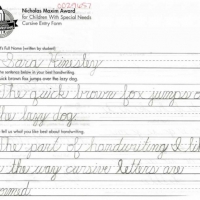 Nicholas Maxim Award
for Children With Special Needs
Cursive Entry Form
's Full Name (written by student)
Sara Hinesley
the sentence below in your best handwriting.
quick brown fox jumps over the lazy dog.
The quick brown fox jumps o
the lazy dog.
tell us what you like best about handwriting.
The part of handwriting I li
is the way cursive letters are
ormed